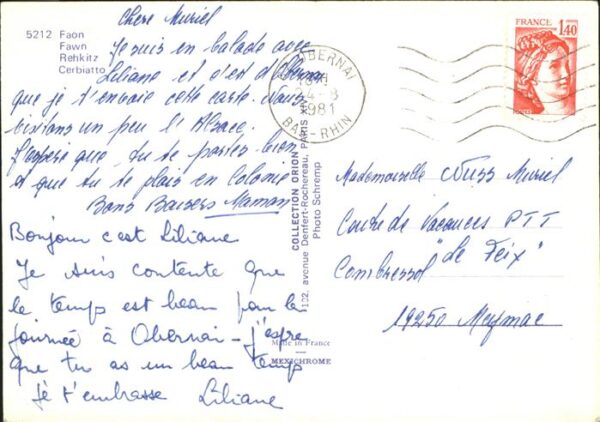 5212 Faon
Fawn
Rehkitz
Cerbiatto
Chère Muriel
Je suis en balade avec
Liliane et c'est d'Obernai
que je t'envoie cette carte. Nous
visitons un peu l'Alsace.
J'espère que tu te portes bien
et que tu te plais en Colonie
Bons Baisers Maman
Bonjour c'est Liliane
Je suis contente que
le temps est beau pour la
journée à Obernai - j'espre
que tu as un beau temps
Je t'embrasse Liliane
OBERNAI
24-8
1981
BAS-RHIN
FRANCE
1,40
COLLECTION ORION
102, avenue Denfert-Rochereau, PARIS XIV
Photo Schremp
Made in France
MEXICHROME
Mademoiselle Wuss Muriel
Centre de Vacances PTT
"Le Feix"
Combressol
19250 Meymac